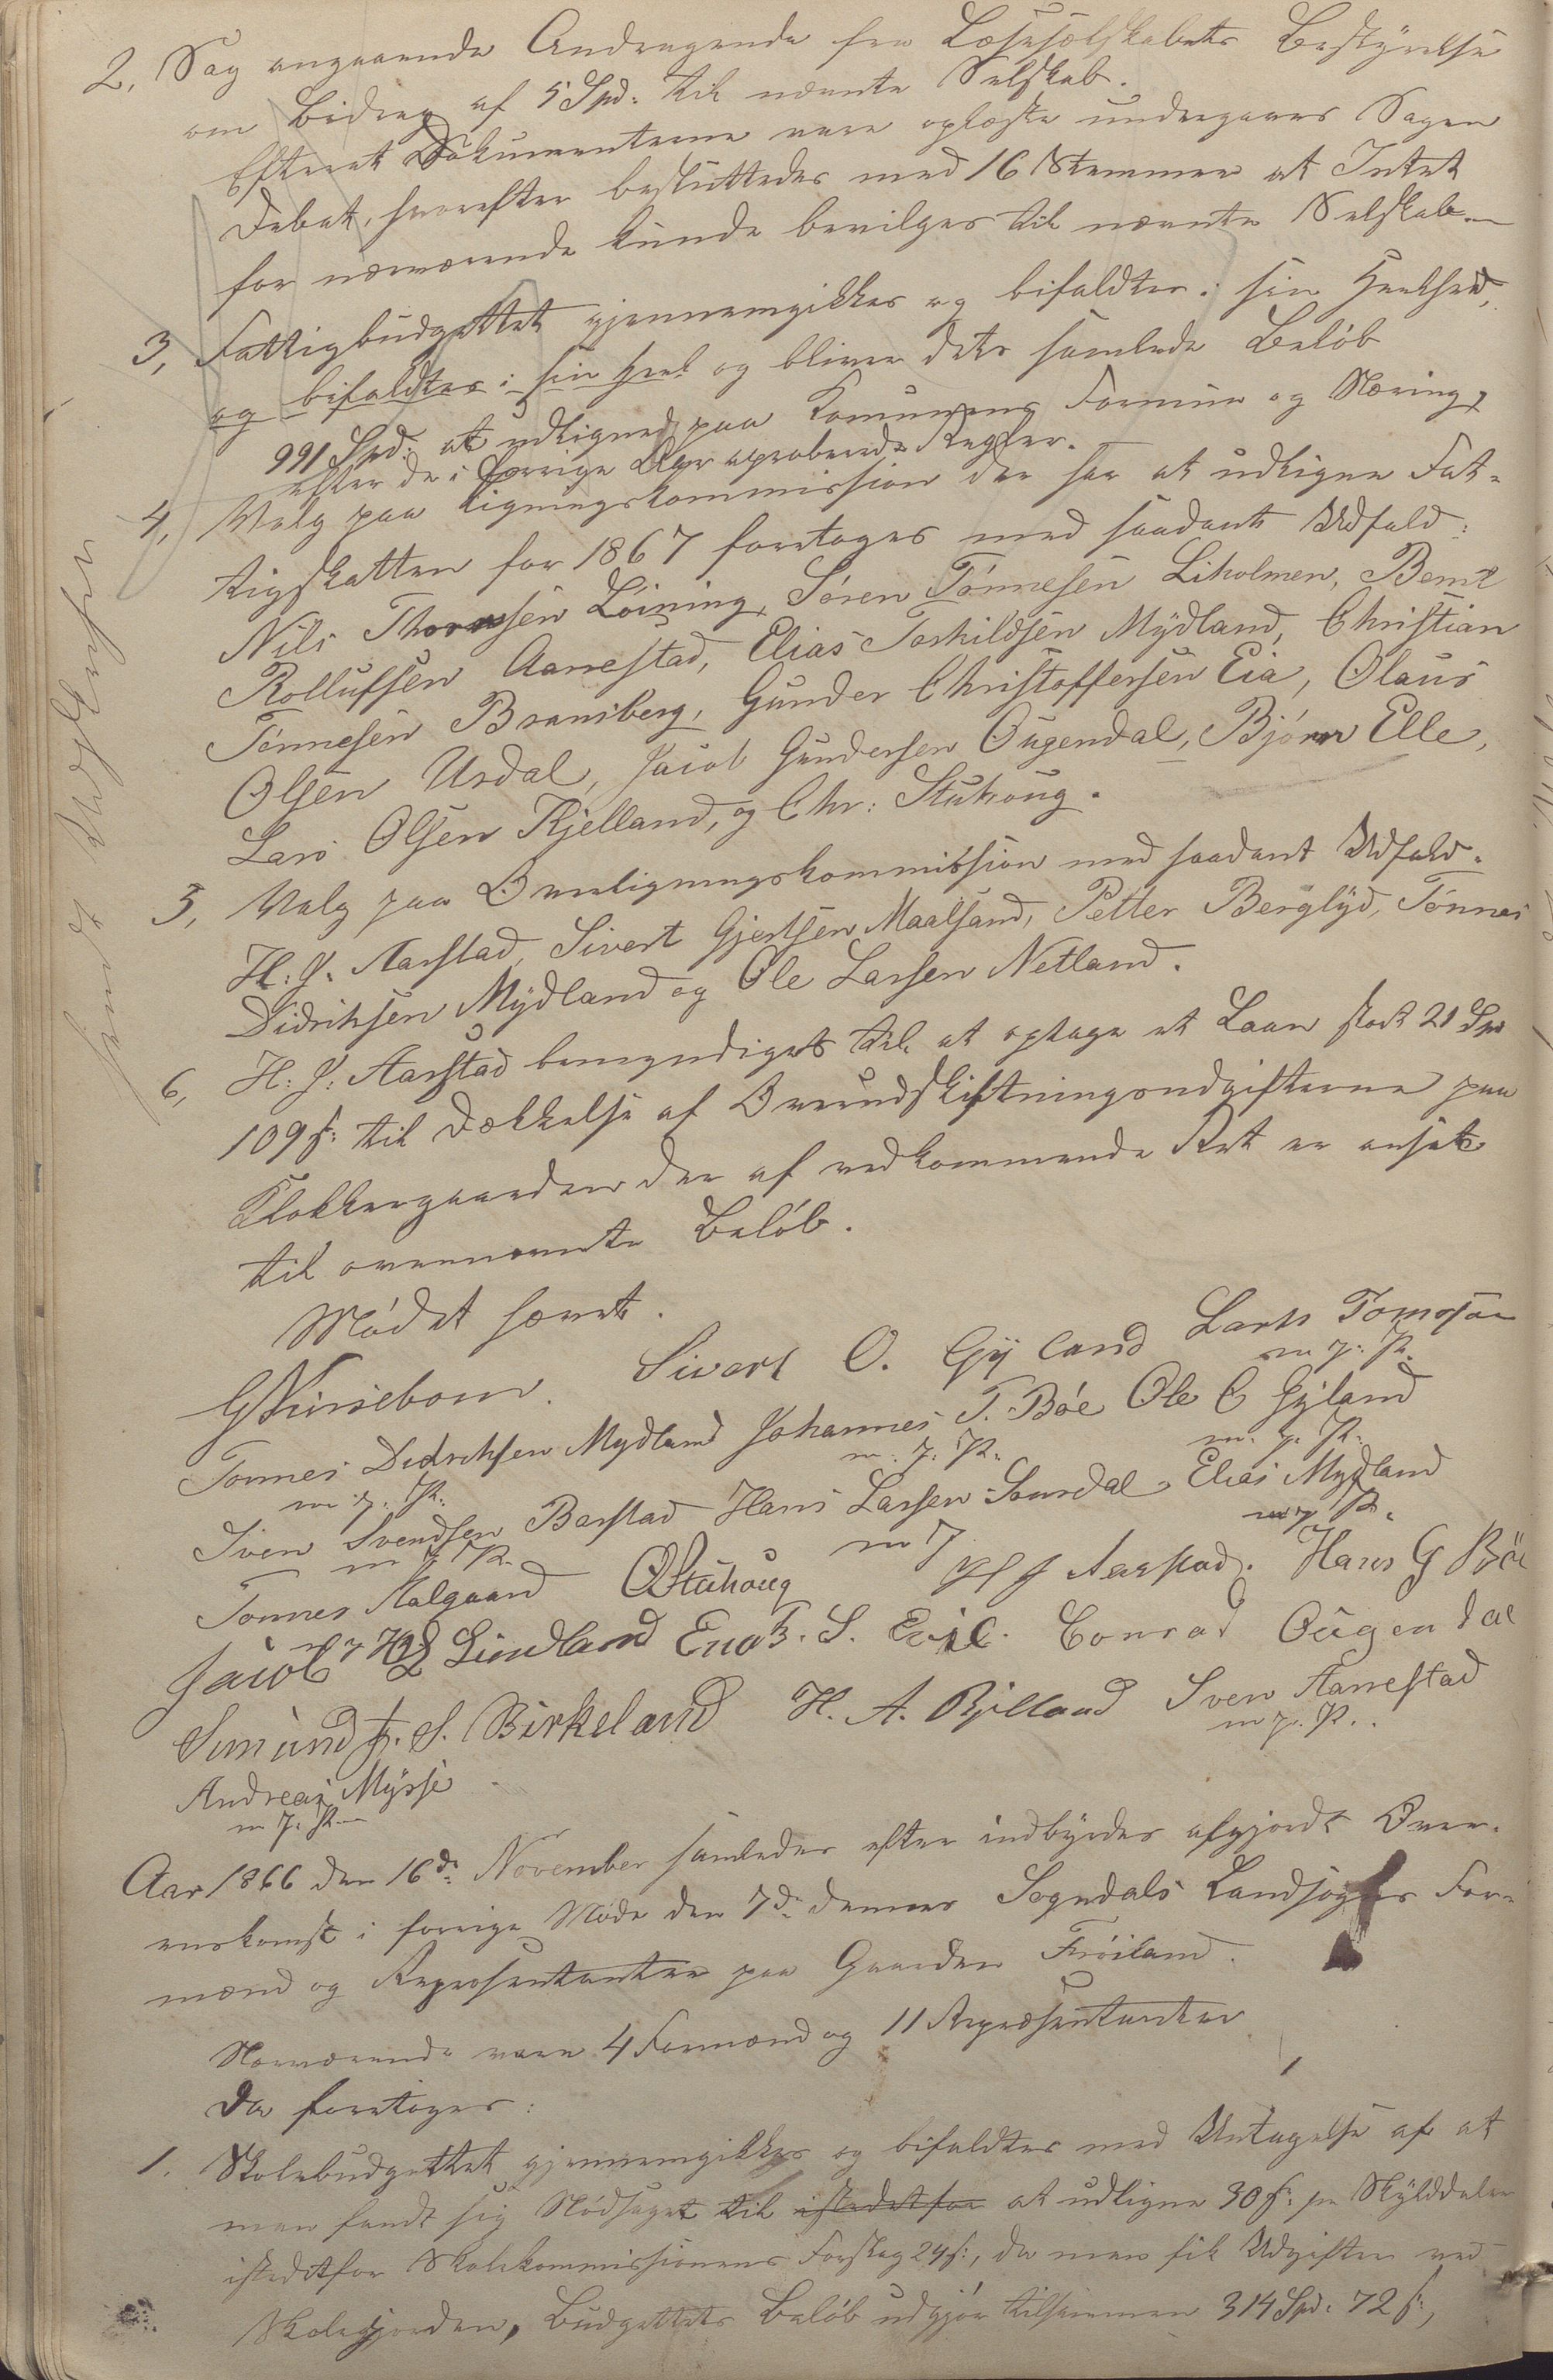 2, Sag angaaende Andragende fra Læseselskabets Bestyrelse
om Bidrag af 5 Spd: til nævnte Selskab.
Efterat Dokumenterne vare oplæste undergaves Sagen
Debat, hvorefter besluttedes med 16 Stemmer at Intet
for nærværende kunde bevilges til nævnte Selskab.
3, Fattigbudgettet gjennemgikkes og bifaldtes i sin Heelhed,
og bifaldtes i sin Heel og bliver dets samlede Beløb
991 Spd: at udligned paa Komunens Formue og Næring,
efter de i forrige Aar aproberede Regler.
4, Valg paa Ligningskommission der har at udligne Fat-
tigskatten for 1867 foretoges med saadant Udfald:
Nils Thornsen Løining, Søren Tønnesen Liholmen, Bernt
Rollufsen Aanestad, Elias Torkildsen Mydland, Christian
Tønnesen Bransberg, Gunder Christoffersen Eia, Olaus
Olsen Urdal, Jacob Gundersen Ougendal, Bjørn Elle,
Lars Olsen Kjelland, og Chr: Stuhoug.
5, Valg paa Overligningskommission med saadant Udfald.
H: J. Aarstad, Sivert Gjertsen Maalsand, Petter Berglyd, Tønnes
Didriksen Mydland og Ole Larsen Netland.
6, H: J: Aarstad bemyndiges til at optage et Laan stort 21 Spd
109 s: til Dækkelse af Overudskiftningsudgifterne paa
Klokkergaarden der af vedkommende Ret er ansat
til ovennævnte Beløb.
Mødet hævet.
Sivert O. Gyland Lars Tomassen
m. p. P.
Tonnes Didrichsen Mydland Johannes T. Bøe Ole O Gyland
m. p. P. m. p. P. m. p. P.
Sven Svendsen Barstad Hans Larsen Elias Mydland
m p P. m p m p P.
Tonnes Aalgaard OStuhoug H J Aarstad. Hans G Bøe
Jacob Lindland S. Eie. Conrad Ougendal
S. Birkeland H. A. Kjelland Sven Aanestad
m. p. P.
Andreas Mysse
m. p. P.
Aar 1866 den 16de November samledes efter indbyrdes afgjordt Over-
enskomst i forrige Møde den 7de dennes Sogndals Landsogns For-
mænd og Representanter paa Gaarden Frøiland.
Nærværende vare 4 Formænd og 11 Repræsentanter
Da foretoges:
1. Skolebudgettet gjennemgikkes og bifaldtes med Untagelse af at
man fandt sig Nødsaget til istedetfor at udligne 30 s: pr Skylddaler
istedetfor Skolekommissionens Forslag 24 s:, da man fik Udgifter ved
Skolejorden, Budgettets Beløb udgjør tilsammen 314 Spd: 72 s:,